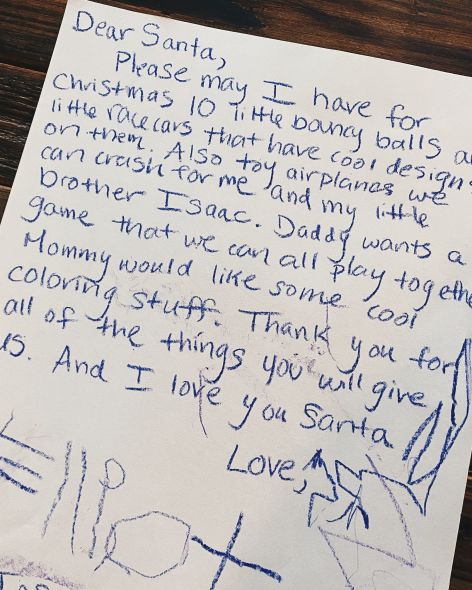 Dear Santa,
Please may I have for
Christmas 10 little bouncy balls a
little racecars that have cool design
on them. Also toy airplanes we
can crash for me and my little
brother Isaac. Daddy wants a
game that we can all play togethe
Mommy would like some cool
coloring stuff. Thank you for
all of the things you will give
us. And I love you Santa
Love,